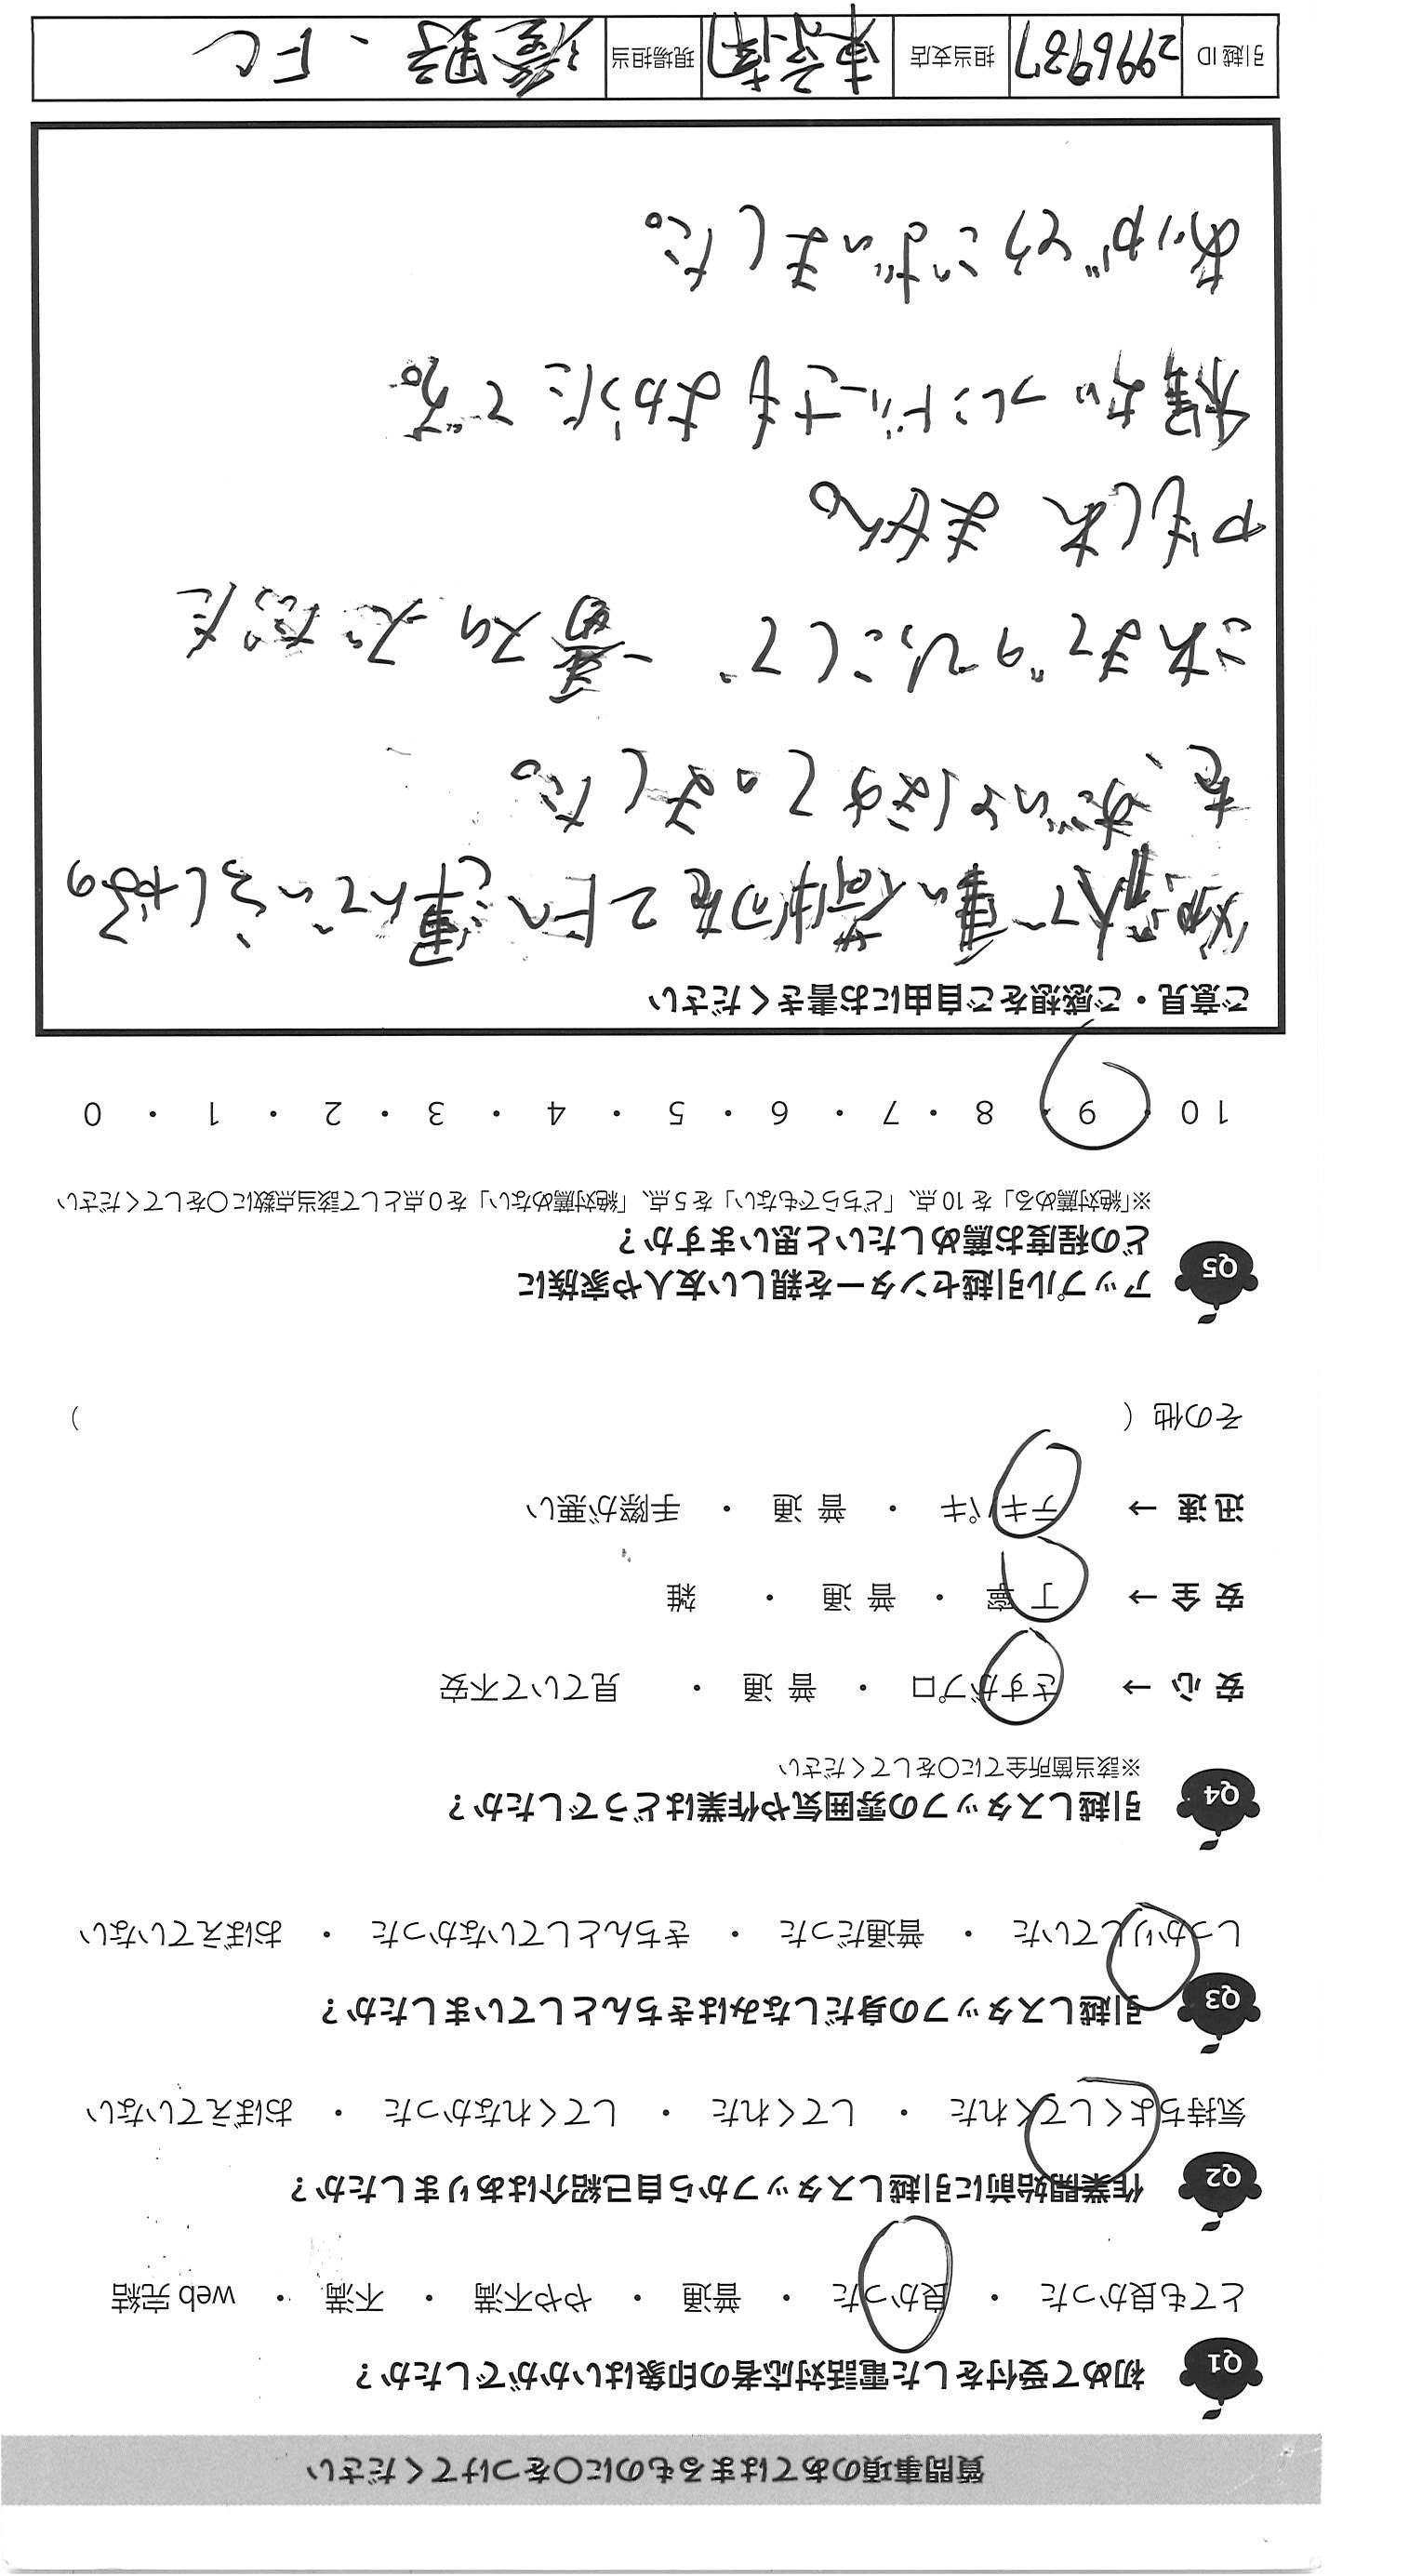 質問事項のあてはまるものに○をつけてください
Q1 初めて受付をした電話対応者の印象はいかがでしたか？
とても良かった ・ 良かった ・ 普通 ・ やや不満 ・ 不満 ・ web 完結
Q2 作業開始前に引越しスタッフから自己紹介はありましたか？
気持ちよくしてくれた ・ してくれた ・ してくれなかった ・ おぼえていない
Q3 引越しスタッフの身だしなみはきちんとしていましたか？
しっかりしていた ・ 普通だった ・ きちんとしていなかった ・ おぼえていない
Q4 引越しスタッフの雰囲気や作業はどうでしたか？
※該当箇所全てに○をしてください
安 心 → さすがプロ ・ 普 通 ・ 見ていて不安
安 全 → 丁 寧 ・ 普 通 ・ 雑
迅 速 → テキパキ ・ 普 通 ・ 手際が悪い
その他（ ）
Q5 アップル引越センターを親しい友人や家族に
どの程度お薦めしたいと思いますか？
※「絶対薦める」を 10 点、「どちらでもない」を 5 点、「絶対薦めない」を 0 点として該当点数に○をしてください
10 ・ 9 ・ 8 ・ 7 ・ 6 ・ 5 ・ 4 ・ 3 ・ 2 ・ 1 ・ 0
ご意見・ご感想をご自由にお書きください
重い荷物を2Fへ運んでいらしたの
を、
ました。
これまでのひっこしで 一番
かもしれません
フレンドリーさもよかったです。
ありがとうございました。
引越 ID 2996987 担当支店 東京南 現場担当 FC